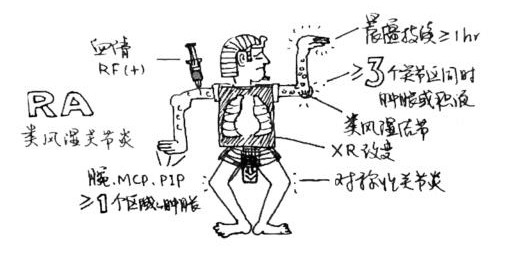 血清
RF(+)
RA
类风湿关节炎
腕、MCP、PIP
≥1个区域肿胀
晨僵持续≥1hr
≥3个关节区同时
肿胀或积液
类风湿结节
XR改变
对称性关节炎